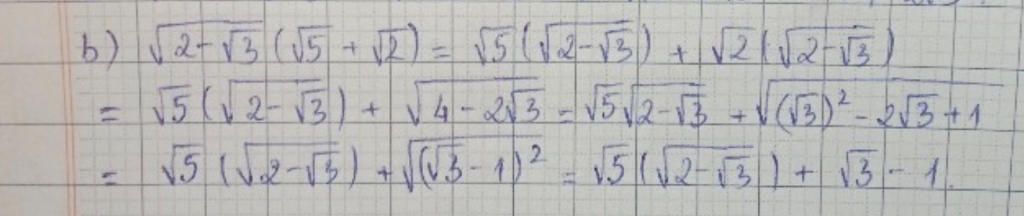 b) √(2-√3) (√5 + √2) = √5 (√(2-√3)) + √2 (√(2-√3))
= √5 (√(2-√3)) + √(4-2√3) = √5 √(2-√3) + √((√3)² - 2√3 + 1)
= √5 (√(2-√3)) + √((√3-1)²) = √5 (√(2-√3)) + √3 - 1.